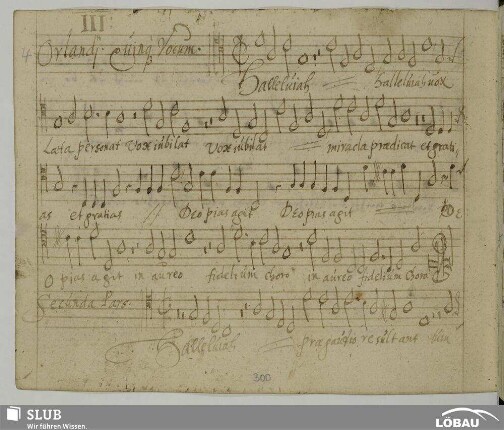 III
4 Orlandj. Quinq Vocum.
Halleluiah Halleluiah vox
Læta personat Vox iubilat Vox iubilat miracla prædicat et grati,
as et gratias Deo pias agit Deo pias agit DE
O pias agit in aureo fidelium choro in aureo fidelium choro
Secunda Pars.
Halleluiah resultant
300
SLUB
Wir führen Wissen.
LÖBAU